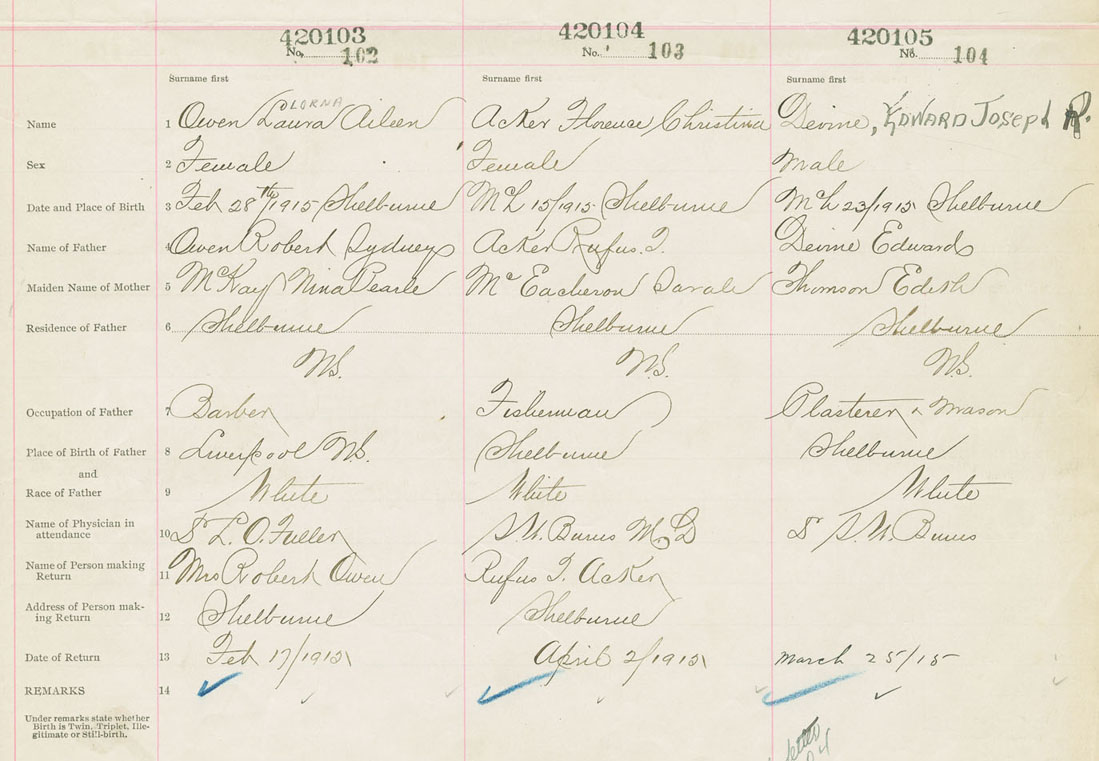 420103 420104 420105
No. 102 No. 103 No. 104
Surname first Surname first Surname first
LORNA
Name 1 Owen Laura Aileen Acker Florence Christina Devine, EDWARD JOSEPH R.
Sex 2 Female Female Male
Date and Place of Birth 3 Feb 28th/1915 Shelburne Mch 15/1915 Shelburne Mch 23/1915 Shelburne
Name of Father 4 Owen Robert Sydney Acker Rufus. Devine Edward
Maiden Name of Mother 5 McKay Nina Pearle McEacheron Thomson Edith
Residence of Father 6 Shelburne Shelburne Shelburne
N.S. N.S. N.S.
Occupation of Father 7 Barber Fisherman Plasterer & Mason
Place of Birth of Father 8 Liverpool N.S. Shelburne Shelburne
and
Race of Father 9 White White White
Name of Physician in
attendance 10 Dr L. O. Fuller S.W. Burns M.D Dr S.W. Burns
Name of Person making
Return 11 Mrs Robert Owen Rufus Acker
Address of Person mak-
ing Return 12 Shelburne Shelburne
Date of Return 13 Feb 17/1915 April 2/1915 March 25/15
REMARKS 14
Under remarks state whether
Birth is Twin, Triplet, Ille-
gitimate or Still-birth.
letter